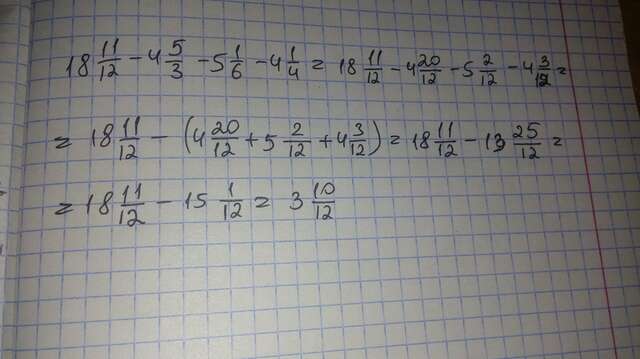 18 11/12 - 4 5/3 - 5 1/6 - 4 1/4 = 18 11/12 - 4 20/12 - 5 2/12 - 4 3/12 =
= 18 11/12 - (4 20/12 + 5 2/12 + 4 3/12) = 18 11/12 - 13 25/12 =
= 18 11/12 - 15 1/12 = 3 10/12